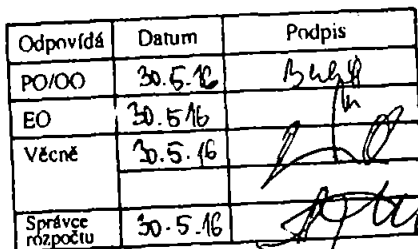 Odpovídá Datum Podpis
PO/OO 30.5.16
EO 30.5.16
Věcně 30.5.16
Správce
rozpočtu 30.5.16